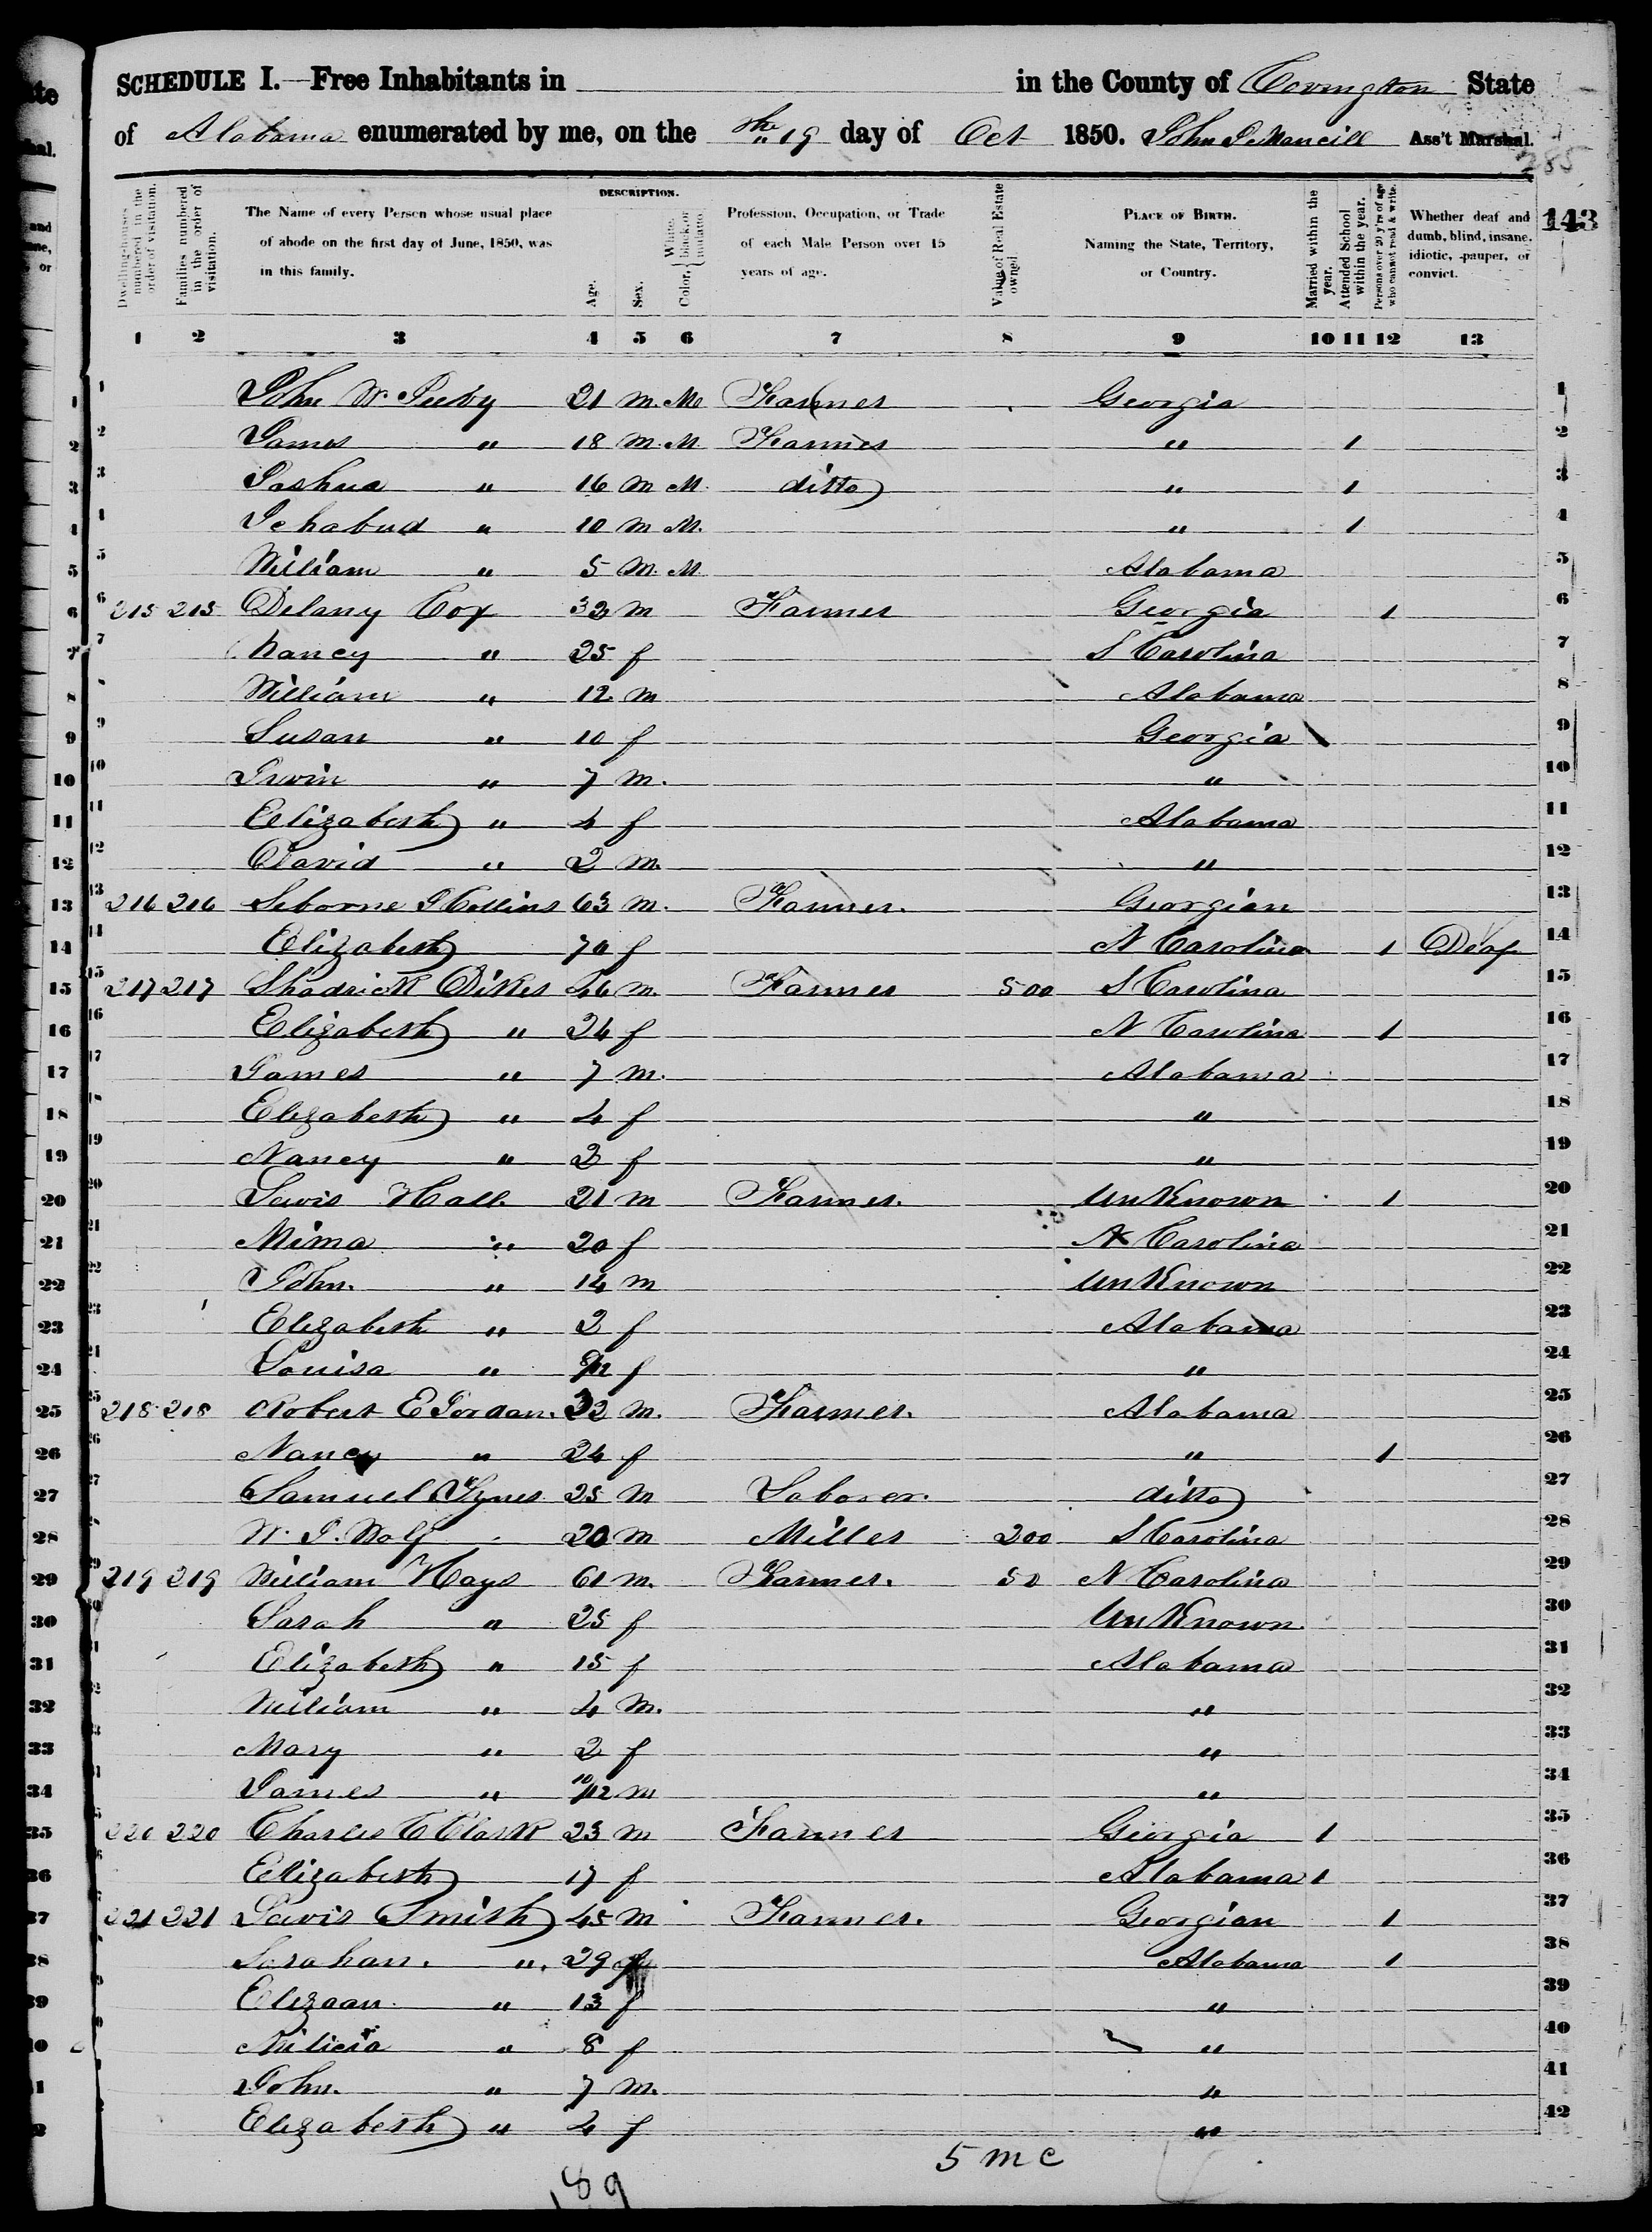 SCHEDULE I.—Free Inhabitants in in the County of Covington State
of Alabama enumerated by me, on the the 19 day of Oct 1850. Ass't Marshal.
285
143
Dwelling-houses numbered in the order of visitation.
Families numbered in the order of visitation.
The Name of every Person whose usual place of abode on the first day of June, 1850, was in this family.
DESCRIPTION.
Age.
Sex.
Color, White, black, or mulatto.
Profession, Occupation, or Trade of each Male Person over 15 years of age.
Value of Real Estate owned.
PLACE OF BIRTH. Naming the State, Territory, or Country.
Married within the year.
Attended School within the year.
Persons over 20 y'rs of age who cannot read & write.
Whether deaf and dumb, blind, insane, idiotic, pauper, or convict.
1 2 3 4 5 6 7 8 9 10 11 12 13
1 John W. 21 m. M Farmer Georgia 1
2 James " 18 m. M. Farmer " 1 2
3 Joshua " 16 m M. ditto " 1 3
4 Ichabud " 10 m M. " 1 4
5 William " 5 m. M. Alabama 5
6 215 215 Delany Cox 32 m Farmer Georgia 1 6
7 Nancy " 25 f S Carolina 7
8 William " 12 m Alabama 8
9 Susan " 10 f Georgia 9
10 Irwin " 7 m. " 10
11 Elizabeth " 4 f Alabama 11
12 David " 2 m. " 12
13 216 216 Seborne J Collins 63 m. Farmer. Georgian 13
14 Elizabeth 70 f N Carolina 1 Deaf 14
15 217 217 Shadrick Dikes 46 m. Farmer 500 S Carolina 15
16 Elizabeth " 24 f N Carolina 1 16
17 James " 7 m. Alabama 17
18 Elizabeth " 4 f " 18
19 Nancy " 2 f " 19
20 Lewis Hall. 21 m Farmer. UnKnown 1 20
21 Mima " 20 f N Carolina 21
22 John. " 14 m UnKnown 22
23 Elizabeth " 2 f Alabama 23
24 Louisa " 8/12 f " 24
25 218 218 Robert E Jordan. 32 m. Farmer. Alabama 25
26 Nancy " 24 f " 1 26
27 Samuel 25 m Laborer. ditto 27
28 W. J. Wolf 20 m Miller 200 S Carolina 28
29 219 219 William Hays 61 m. Farmer. 50 N Carolina 29
30 Sarah " 25 f UnKnown. 30
31 Elizabeth " 15 f Alabama 31
32 William " 4 m. " 32
33 Mary " 2 f " 33
34 James " 10/12 m " 34
35 220 220 Charles C Clark 23 m Farmer Georgia 1 35
36 Elizabeth 17 f Alabama 1 36
37 221 221 Lewis Smith 45 m Farmer. Georgian 1 37
38 Sarahan. " 29 f Alabama 1 38
39 Elizaan " 13 f " 39
40 Milicia " 8 f " 40
41 John. " 7 m. " 41
42 Elizabeth " 4 f " 42
5 m c
189